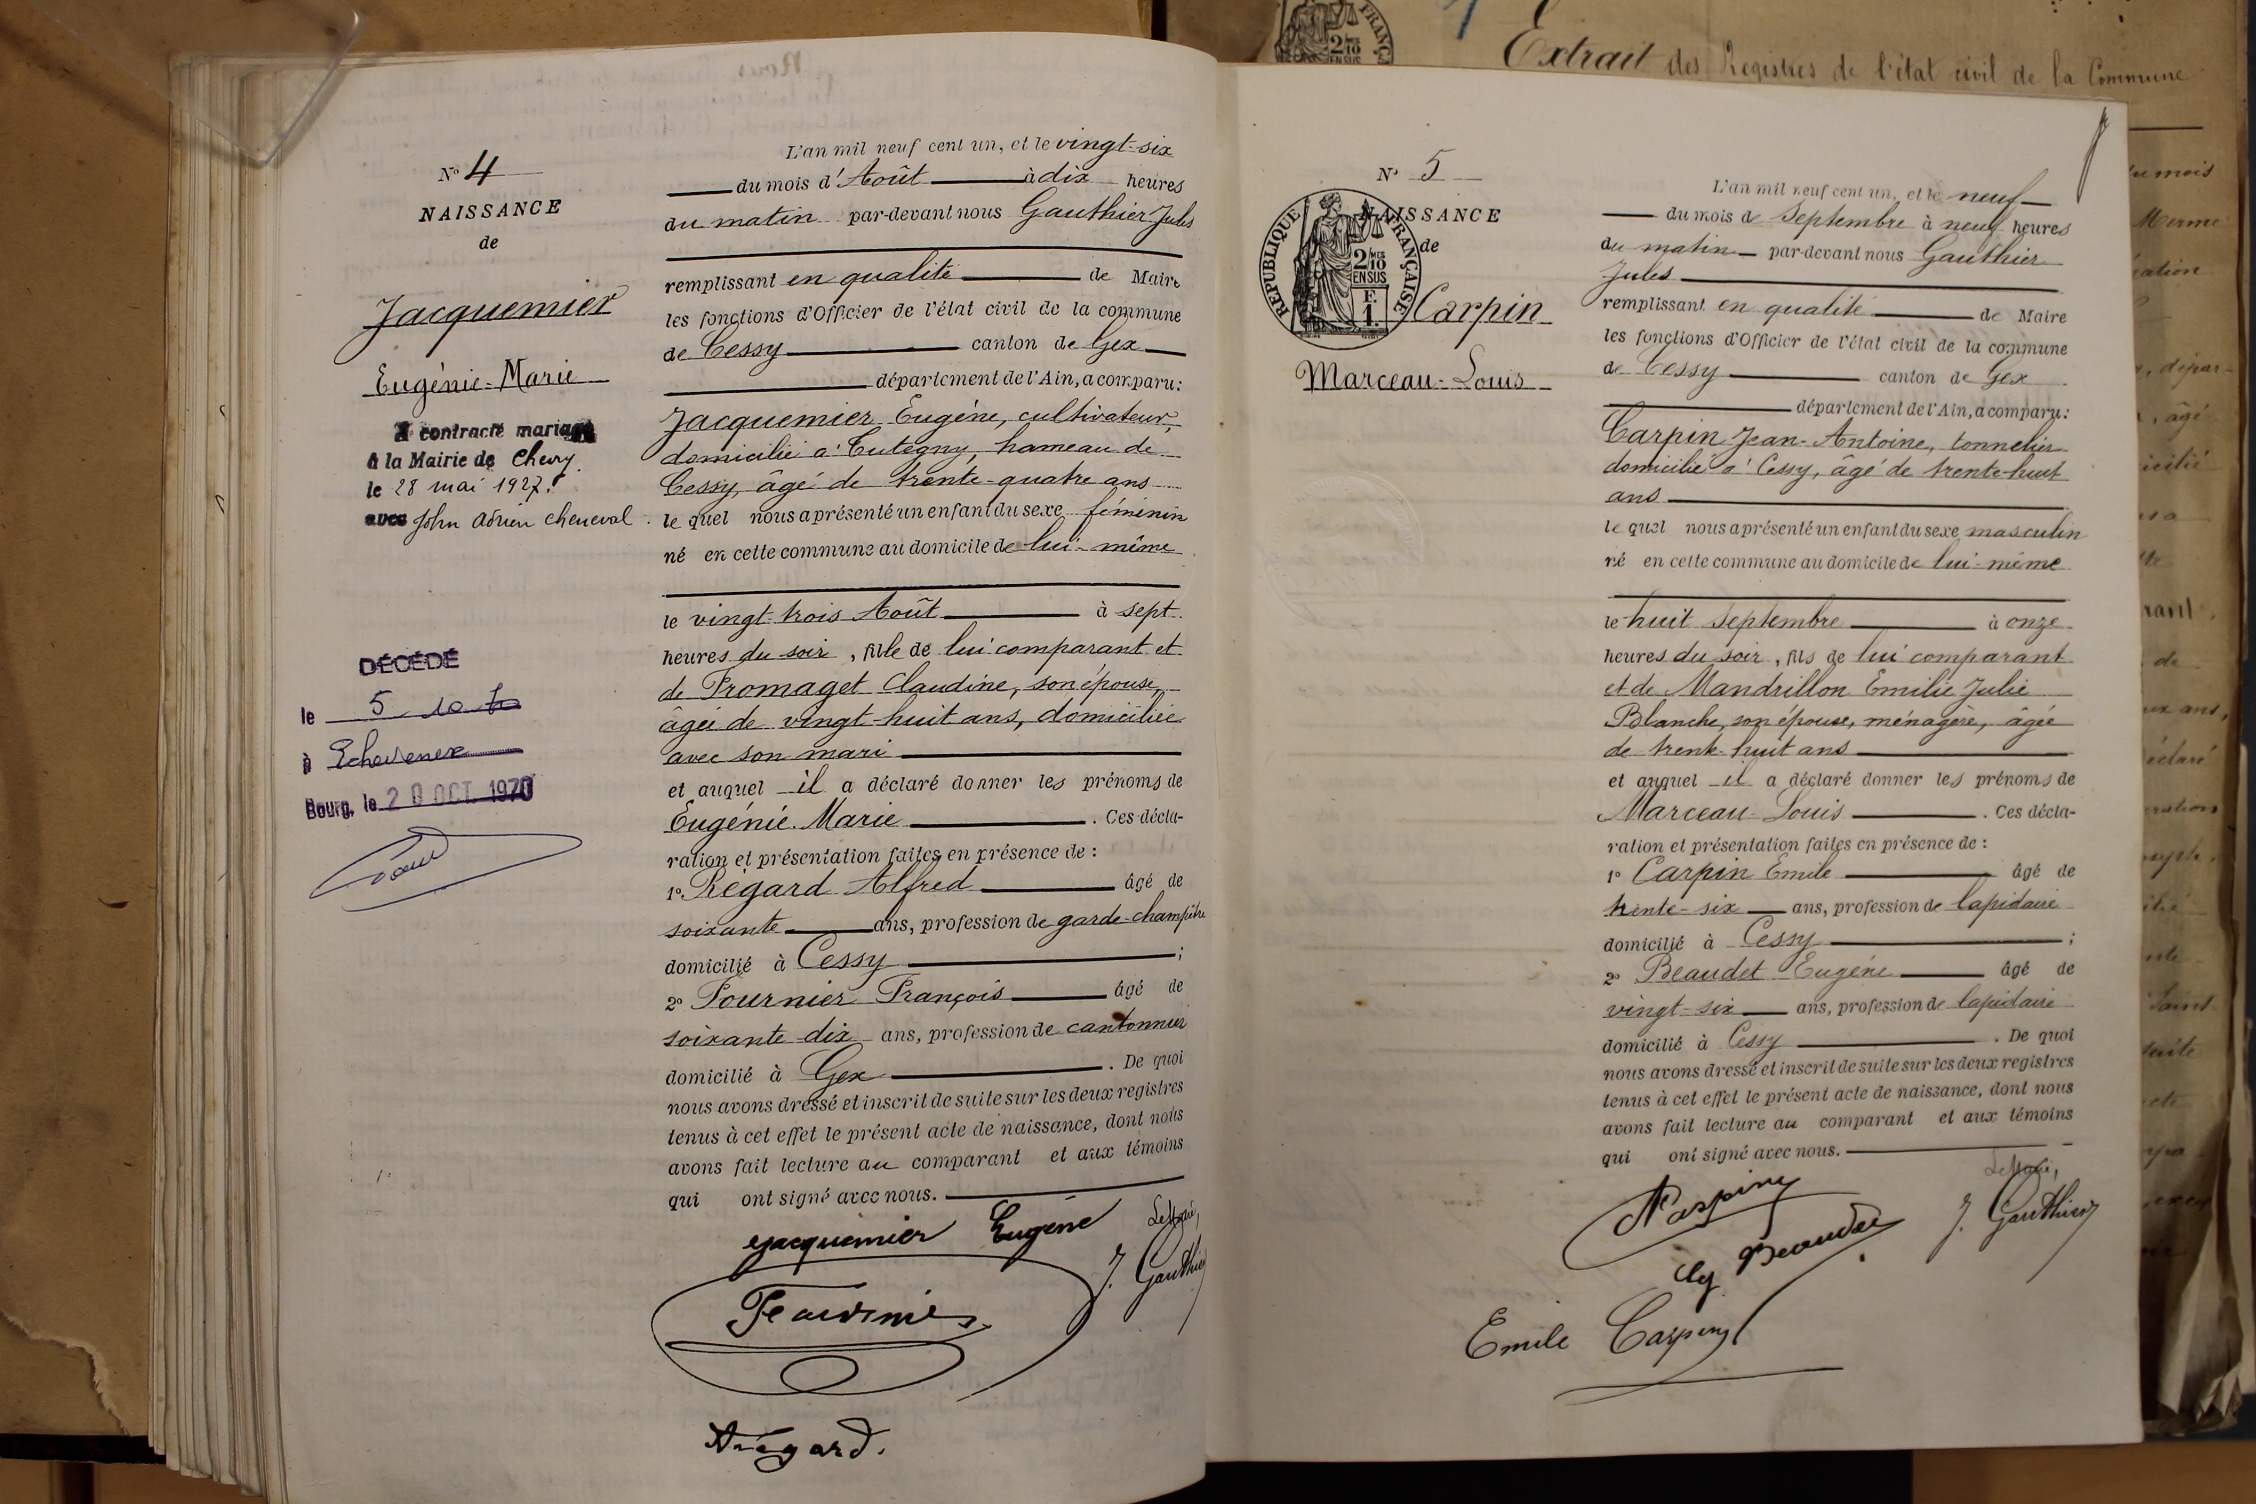 Nº 4
NAISSANCE
de
Jacquemier
Eugénie-Marie
A contracté mariage
à la Mairie de Chevry.
le 28 mai 1927.
avec John Adrien Cheneval.
DÉCÉDÉ
le 5 10 70
à Echevenex
Bourg, le 20 OCT. 1970
L'an mil neuf cent un, et le vingt-six
du mois d'Août à dix heures
du matin par-devant nous Gauthier Jules
remplissant en qualité de Maire
les fonctions d'Officier de l'état civil de la commune
de Cessy canton de Gex
département de l'Ain, a comparu:
Jacquemier Eugène, cultivateur,
domicilié à Tutegny, hameau de
Cessy, âgé de trente-quatre ans
le quel nous a présenté un enfant du sexe féminin
né en cette commune au domicile de lui-même
le vingt-trois Août à sept
heures du soir, fille de lui comparant et
de Fromaget Claudine, son épouse,
âgée de vingt-huit ans, domiciliée
avec son mari
et auquel il a déclaré donner les prénoms de
Eugénie Marie. Ces décla-
ration et présentation faites en présence de:
1º Régard Alfred âgé de
soixante ans, profession de garde-champêtre
domicilié à Cessy;
2º Fournier François âgé de
soixante-dix ans, profession de cantonnier
domicilié à Gex. De quoi
nous avons dressé et inscrit de suite sur les deux registres
tenus à cet effet le présent acte de naissance, dont nous
avons fait lecture au comparant et aux témoins
qui ont signé avec nous.
Jacquemier Eugène
Le Maire,
J. Gauthier
A Régard.
Extrait des Registres de l'état civil de la Commune
Nº 5
NAISSANCE
de
REPUBLIQUE FRANÇAISE
2/10 MES
EN SUS
F.
1.
Carpin
Marceau-Louis
L'an mil neuf cent un, et le neuf
du mois de Septembre à neuf heures
du matin par-devant nous Gauthier
Jules
remplissant en qualité de Maire
les fonctions d'Officier de l'état civil de la commune
de Cessy canton de Gex
département de l'Ain, a comparu:
Carpin Jean-Antoine, tonnelier
domicilié à Cessy, âgé de trente-huit
ans
le quel nous a présenté un enfant du sexe masculin
né en cette commune au domicile de lui-même
le huit Septembre à onze
heures du soir, fils de lui comparant
et de Mandrillon Emilie Julie
Blanche, son épouse, ménagère, âgée
de trente-huit ans
et auquel il a déclaré donner les prénoms de
Marceau-Louis. Ces décla-
ration et présentation faites en présence de:
1º Carpin Emile âgé de
trente-six ans, profession de lapidaire
domicilié à Cessy;
2º Beaudet Eugène âgé de
vingt-six ans, profession de lapidaire
domicilié à Cessy. De quoi
nous avons dressé et inscrit de suite sur les deux registres
tenus à cet effet le présent acte de naissance, dont nous
avons fait lecture au comparant et aux témoins
qui ont signé avec nous.
Le Maire,
J. Gauthier
Emile Carpin